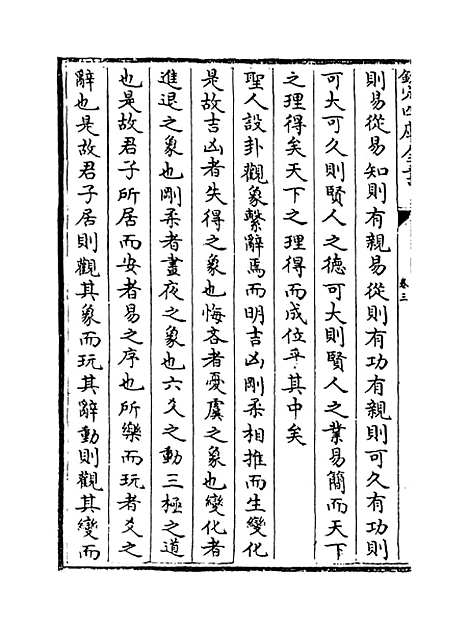 欽定四庫全書
卷三
則易從易知則有親易從則有功有親則可久有功則
可大可久則賢人之德可大則賢人之業易簡而天下
之理得矣天下之理得而成位乎其中矣
聖人設卦觀象繫辭焉而明吉凶剛柔相推而生變化
是故吉凶者失得之象也悔吝者憂虞之象也變化者
進退之象也剛柔者晝夜之象也六爻之動三極之道
也是故君子所居而安者易之序也所樂而玩者爻之
辭也是故君子居則觀其象而玩其辭動則觀其變而